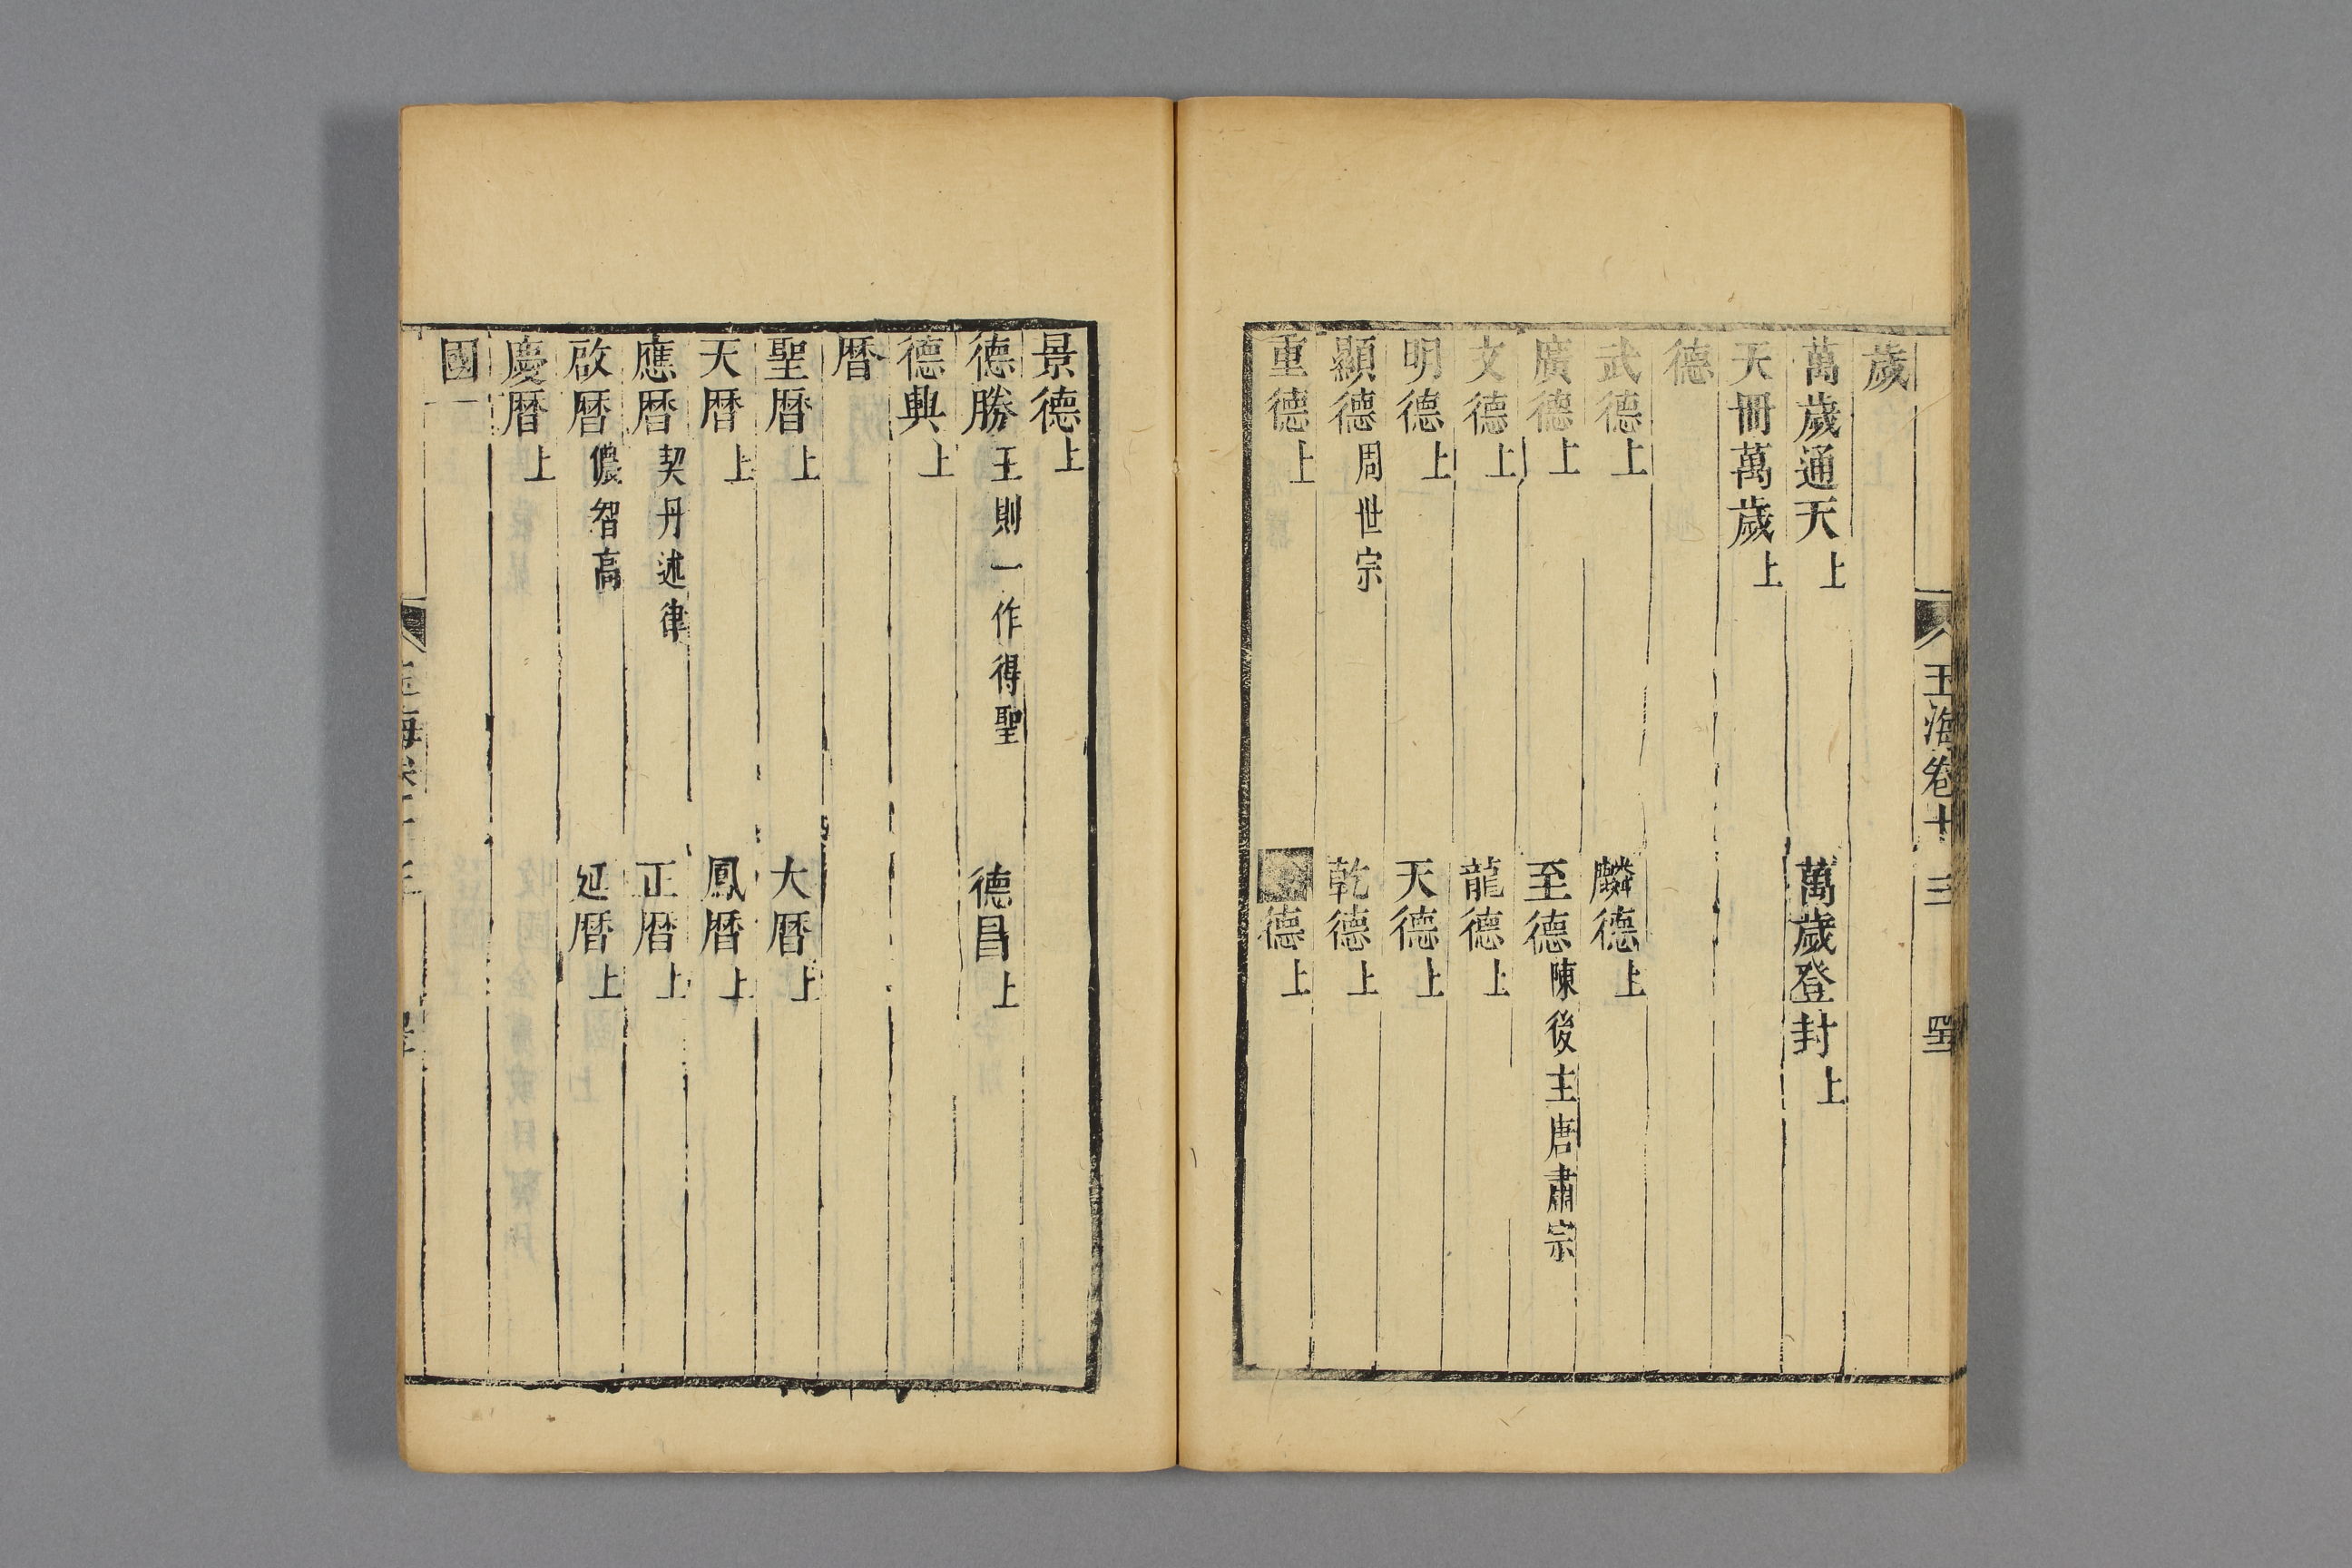 玉海卷十三
歲
萬歲通天上 萬歲登封上
天冊萬歲上
德
武德上 麟德上
廣德上 至德陳後主唐肅宗
文德上 龍德上
明德上 天德上
顯德周世宗 乾德上
重德上 德上
景德上
德勝王則一作得聖 德昌上
德興上
曆
聖曆上 大曆上
天曆上 鳳曆上
應曆契丹述律 正曆上
啟曆儂智高 延曆上
慶曆上
國